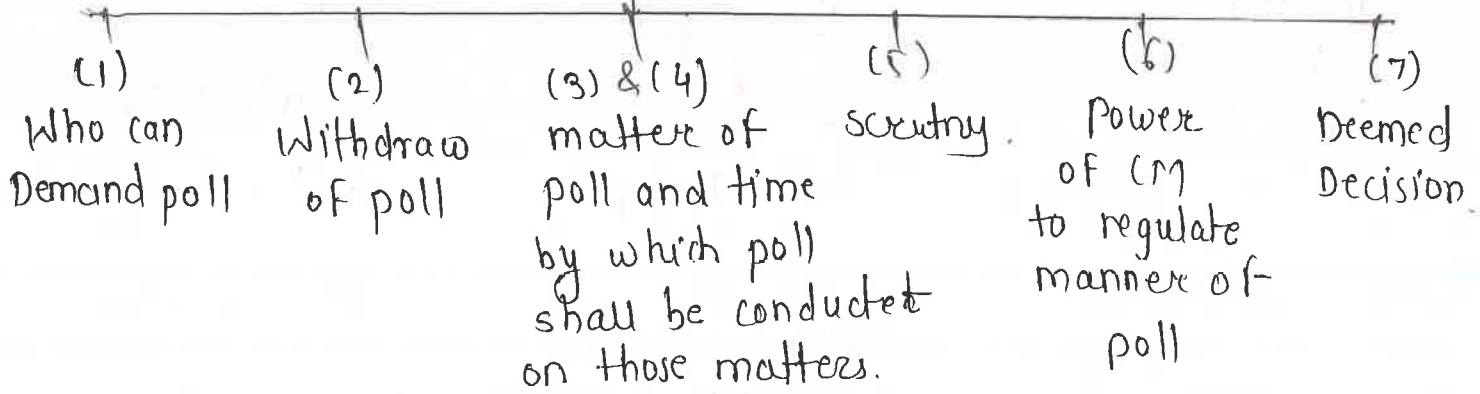 (1)
Who can
Demand poll
(2)
Withdraw
of poll
(3) & (4)
matter of
poll and time
by which poll
shall be conducted
on those matters.
(5)
scrutny.
(6)
Power
of CM
to regulate
manner of
poll
(7)
Deemed
Decision